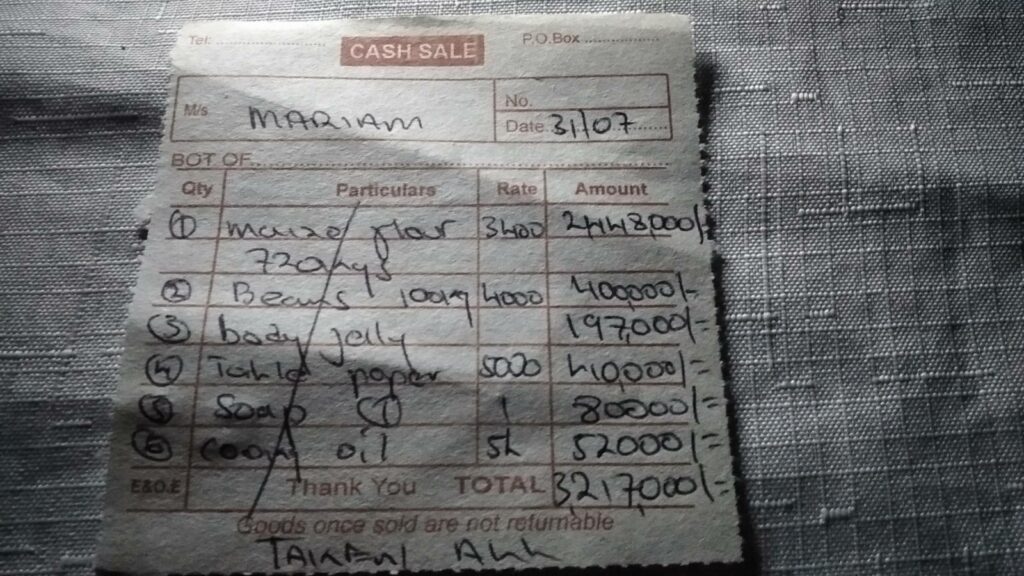 Tel: P.O.Box
CASH SALE
M/s MARIAM No.
Date 31/07
BOT OF
Qty Particulars Rate Amount
① maize flour 3400 2,448,000/-
720kgs
② Beans 100kg 4000 400,000/-
③ body jelly 197,000/=
④ paper 5000 40,000/=
⑤ Soap ① 1 80000/=
⑥ oil 5L 52000/=
E&O.E Thank You TOTAL 3,217,000/=
Goods once sold are not refurnable